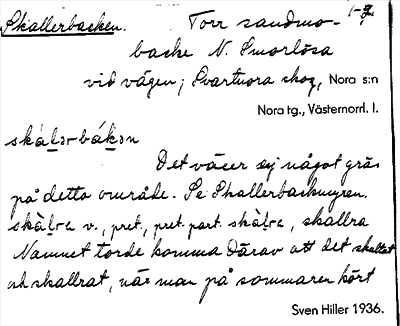 Skallerbacken. Torr sandmo-
backe N. Smorlösa
vid vägen; Svartvora skog, Nora s:n
Nora tg., Västernorrl. l.
skálər-bákən
Det växer ej något gräs
på detta område. Se Skallerbackmyren.
skàlra v., pret., pret. part. skàlra, skallra
Namnet torde komma därav att det skallat
och skallrat, när man på sommaren kört
Sven Hiller 1936.